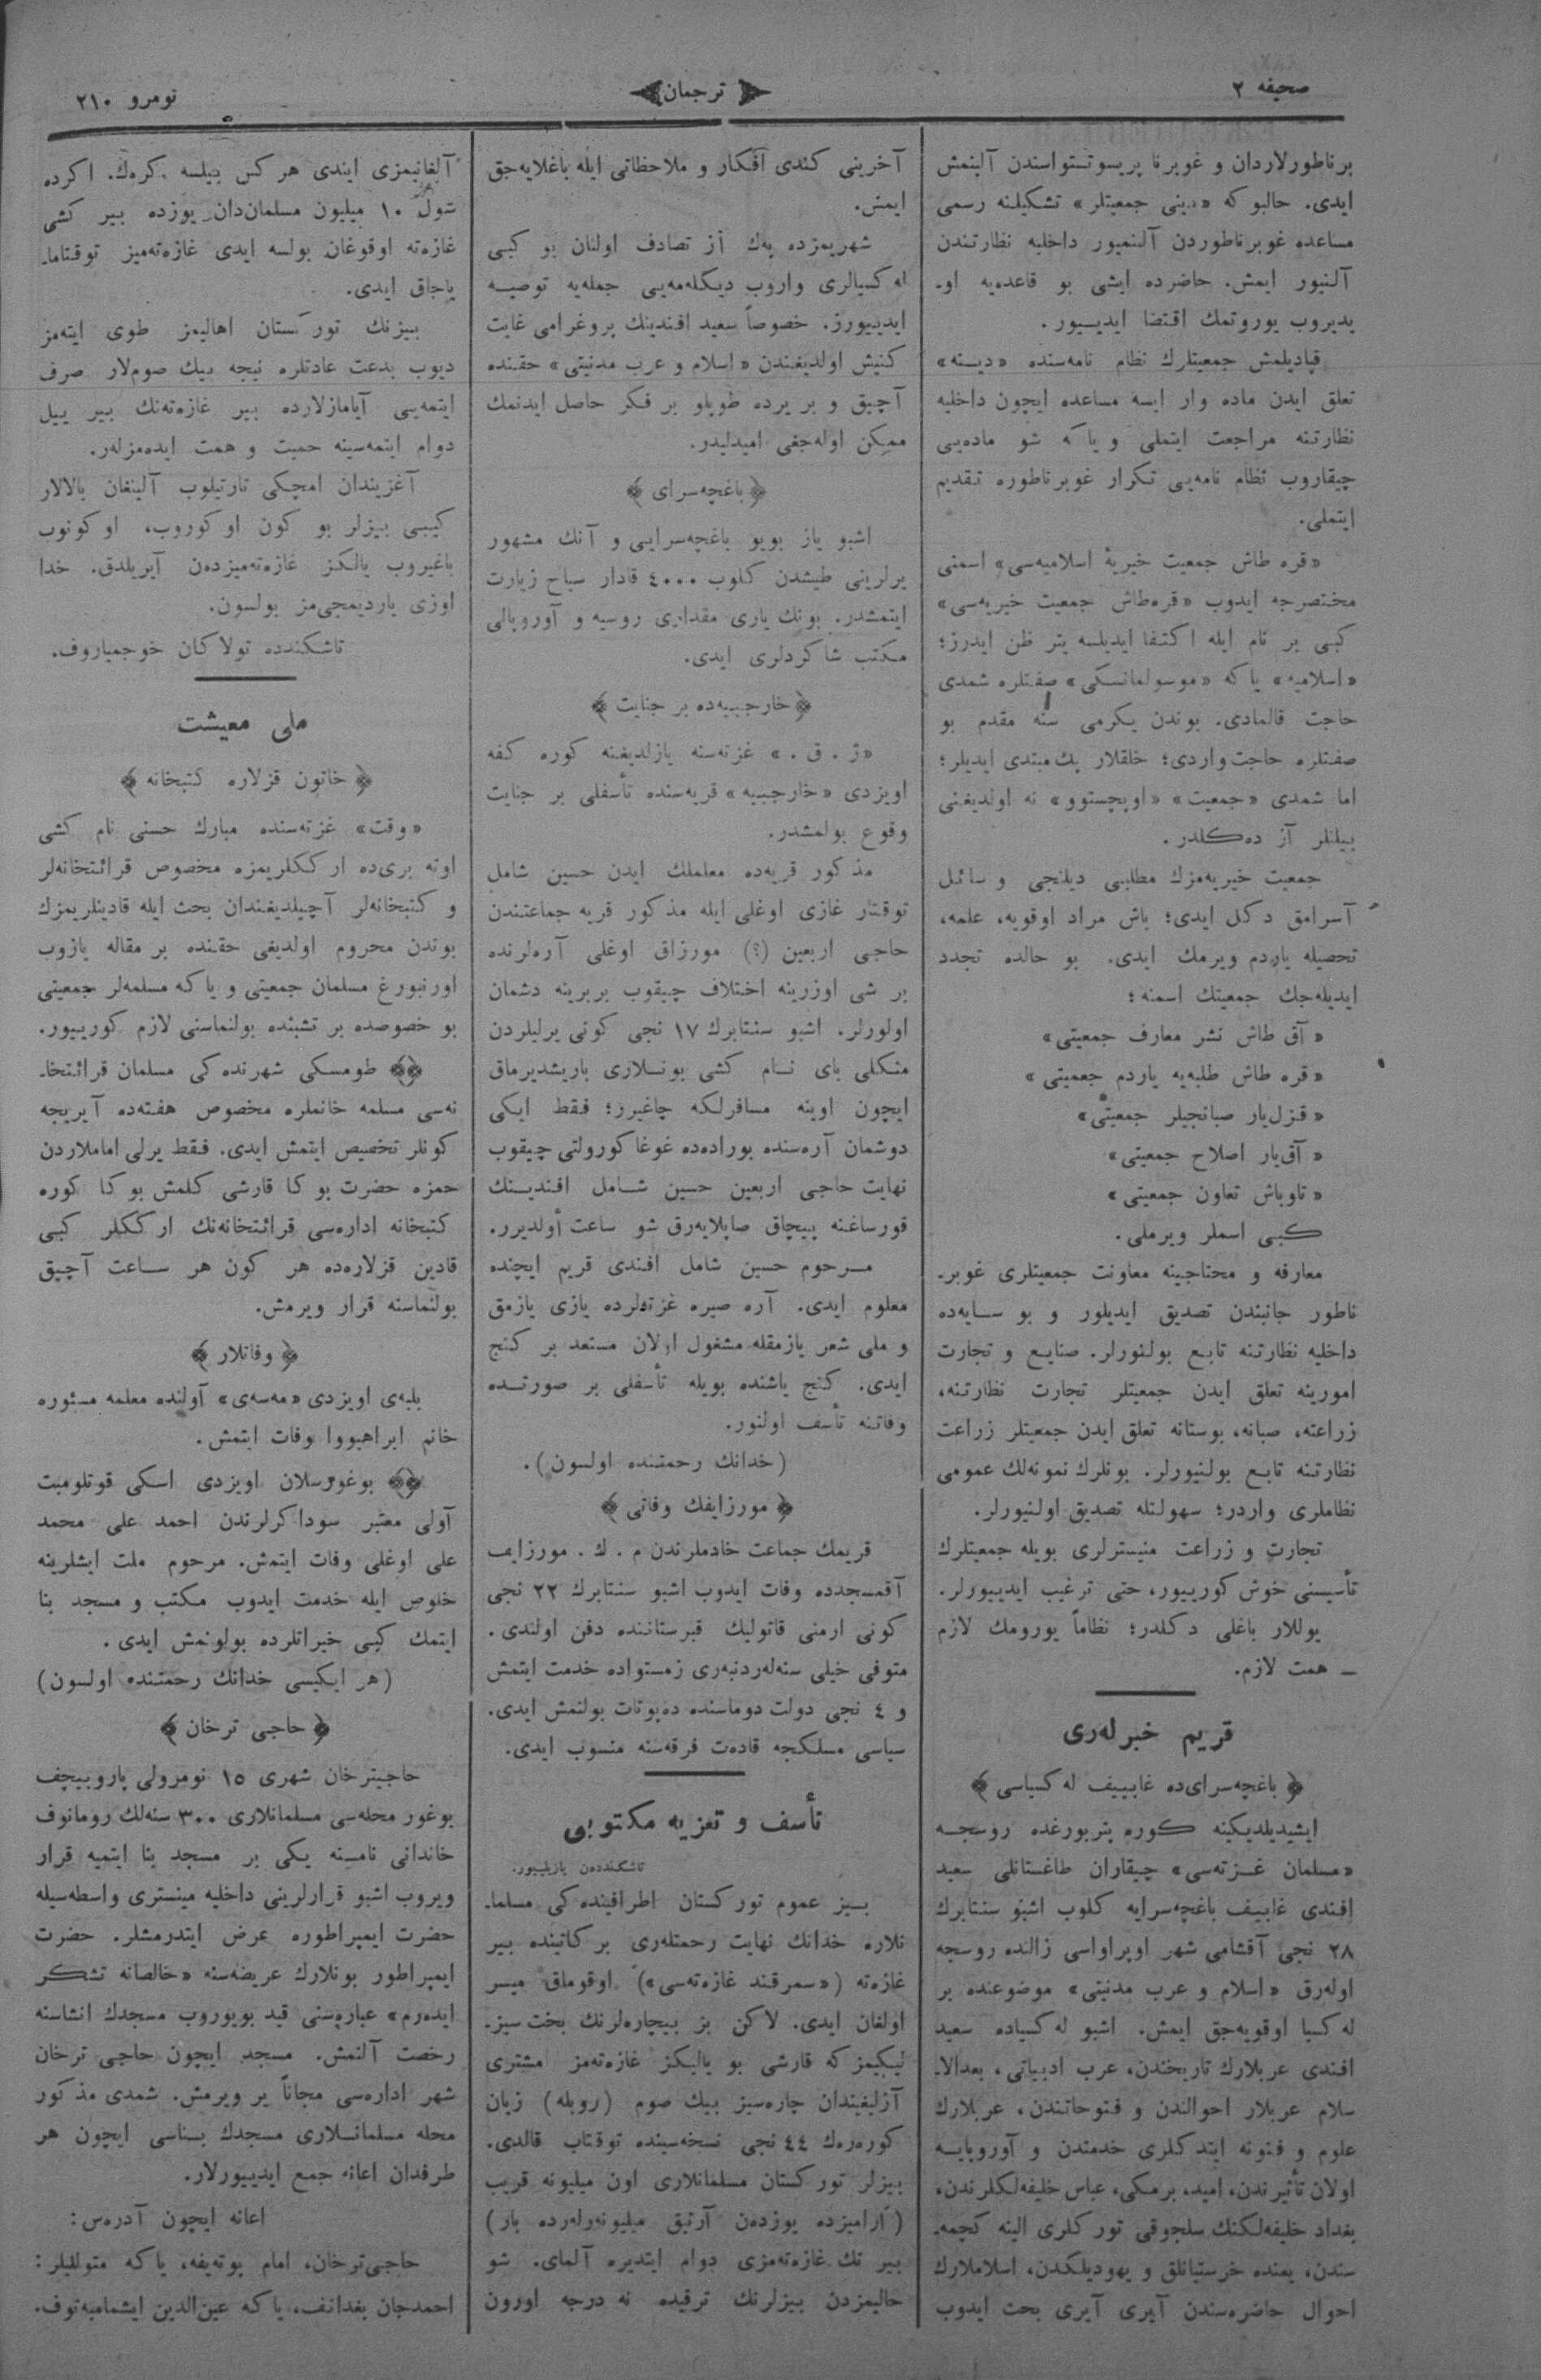 صحیفه ٢
ترجمان
نومرو ٢١٠
برناطورلاردان و غوبرنا پریسوتستواسندن آلینمش
ایدی. حالبو که «دینی جمعیتلر» تشکیلنه رسمی
مساعده غوبرناطوردن آلنمیور داخلیه نظارتندن
آلنیور ایمش. حاضرده ایشی بو قاعده‌یه او‍ـ
یدیروب یوروتمك اقتضا ایدیـیور.
قپادیلمش جمعیتلرك نظام نامه‌سنده «دیـنه»
تعلق ایدن ماده وار ایسه مساعده ایچون داخلیه
نظارتنه مراجعت ایتملی و یا که شو ماده‌یی
چیقاروب نظام نامه‌یی تکرار غوبرناطوره تقدیم
ایتملی.
«قره طاش جمعیت خیریۀ اسلامیه‌سی» اسمنی
مختصرجه ایدوب «قره‌طاش جمعیت خیریه‌سی»
کبی بر نام ایله اکتفا ایدیلسه یتر ظن ایدرز؛
«اسلامیه» یا که «موسولمانسکی» صفتلره شمدی
حاجت قالمادی. بوندن یکرمی سنه مقدم بو
صفتلره حاجت واردی؛ خلقلار پك مبتدی ایدیلر؛
اما شمدی «جمعیت» «اوبچستوو» نه اولدیغنی
بیلنلر آز ده‌کلدر.
جمعیت خیریه‌مزك مطلبی دیلنجی و سائل
آسرامق دکل ایدی؛ باش مراد اوقویه، علمه،
تحصیله یاردم ویرمك ایدی. بو حالده تجدد
ایدیله‌جك جمعیتك اسمنه؛
« آق طاش نشر معارف جمعیتی»
« قره طاش طلبه‌یه یاردم جعمیتی»
« قزل‌یار صبانجیلر جمعیتی»
« آق‌یار اصلاح جمعیتی»
« تاوباش تعاون جمعیتی»
کبی اسملر ویرملی.
معارفه و محتاجینه معاونت جمعیتلری غوبرـ
ناطور جانبندن تصدیق ایدیلور و بو سـایه‌ده
داخلیه نظارتنه تابع بولنورلر. صنایع و تجارت
امورینه تعلق ایدن جمعیتلر تجارت نظارتنه،
زراعته، صبانه، بوستانه تعلق ایدن جمعیتلر زراعت
نظارتنه تابع بولنیورلر. بونلرك نمونه‌لك عمومی
نظاملری واردر؛ سهولتله تصدیق اولنیورلر.
تجارت و زراعت منیسترلری بویله جمعیتلرك
تأسیسنی خوش کورییور، حتی ترغیب ایدییورلر.
یوللار باغلی دکلدر؛ نظاماً یورومك لازم
ـ همت لازم.
قریم خبرله‌ری
باغچه‌سرای‌ده غابییف له‌کسیاسی
ایشیدیلدیکینه کوره پتربورغده روسجـه
«مسلمان غـزته‌سی» چیقاران طاغستانلی سعید
افندی غابییف باغچه‌سرایه کلوب اشبو سنتابرك
٢٨ نجی آقشامی شهر اوپراواسی زالنده روسجه
اوله‌رق «اسلام و عرب مدنیتی» موضوعنده بر
له‌کسیا اوقویه‌جق ایمش. اشبو له‌کسیاده سعید
افندی عربلارك تاریخندن، عرب ادبیاتی، بعدالاـ
سلام عربلار احوالندن و فتوحاتندن، عربلارك
علوم و فنونه ایتدکلری خدمتدن و آوروپایـه
اولان تأثیرندن، امید، برمکی، عباس خلیفه‌لکلرندن،
بغداد خلیفه‌لکنك سلجوقی تورکلری الینه کچمه‌ـ
سندن، یمنده خرستیانلق و یهودیلکدن، اسلاملارك
احوال حاضره‌سندن آیری آیری بحث ایدوب
آخرینی کندی افکار و ملاحظاتی ایله باغلایه‌جق
ایمش.
شهریمزده په‌ك آز تصادف اولنان بو کبی
له‌کسیالری واروب دیکله‌مه‌یی جمله‌یه توصیـه
ایدییورز. خصوصاً سعید افندینك پروغرامی غایت
کنیش اولدیغندن «اسلام و عرب مدنیتی» حقنده
آچیق و بر یرده طوپلو بر فکر حاصل ایدنمك
ممکن اوله‌جغی امیدلیدر.
باغچه‌سرای
اشبو یاز بویو باغچه‌سرایی و آنك مشهور
یرلرینی طیشدن کلوب ٤٠٠٠ قادار سیاح زیارت
ایتمشدر. بونك یاری مقداری روسیه و آوروپالی
مکتب شاکردلری ایدی.
خارجیبیه‌ده بر جنایت
«ژ. ق.» غزته‌سنه یازلدیغنه کوره کفه
اویزدی «خارجیبیه» قریه‌سنده تأسفلی بر جنایت
وقوع بولمشدر.
مذکور قریه‌ده معلملك ایدن حسین شامل
توقتار غازی اوغلی ایله مذکور قریه جماعتندن
حاجی اربعین (؟) مورزاق اوغلی آره‌لرنده
بر شی اوزرینه اختلاف چیقوب بربرینه دشمان
اولورلر. اشبو سنتابرك ١٧ نجی کونی یرلیلردن
منکلی بای نـام کشی بونـلاری باریشدیرماق
ایچون اوینه مسافرلکه چاغیرر؛ فقط ایکی
دوشمان آره‌سنده بوراده‌ده غوغا کورولتی چیقوب
نهایت حاجی اربعین حسین شـامل افندیـنك
قورساغنه پیچاق صاپلایه‌رق شو ساعت اولدیرر.
مـرحوم حسین شامل افندی قریم ایچنده
معلوم ایدی. آره صیره غزته‌لرده یازی یازمق
و ملی شعر یازمقله مشغول اولان مستعد بر کنج
ایدی. کنج یاشنده بویله تأسفلی بر صورتـده
وفاتنه تأسف اولنور.
(خدانك رحمتنده اولسون).
مورزایفك وفاتی
قریمك جماعت خادملرندن م. ك. مورزایف
آقمسجدده وفات ایدوب اشبو سنتابرك ٢٢ نجی
کونی ارمنی قاتولیك قبرستاننده دفن اولندی.
متوفی خیلی سنه‌له‌ردنبه‌ری زمستواده خدمت ایتمش
و ٤ نجی دولت دوماسنده ده‌پوتات بولنمش ایدی.
سیاسی مسلکجه قاده‌ت فرقه‌سنه منسوب ایدی.
تأسف و تعزیه مکتوبی
تاشکنددن یازیلیور.
بـیز عموم تورکستان اطرافینده‌کی مسلماـ
نلاره خدانك نهایت رحمتله‌ری برکاتینده بیر
غازه‌ته («سمرقند غازه‌ته‌سی») اوقوماق میسر
اولغان ایدی. لاکن بز بیچاره‌لرنك بخت‌سیزـ
لیکیمزکه قارشی بو یالیکز غازه‌ته‌مز مشتری
آزلیغیندان چاره‌سیز بیك صوم (روبله) زیان
کوره‌ره‌ك ٤٤ نجی نسخه‌سینده توقتاب قالدی.
بیزلر تورکستان مسلمانلاری اون میلیونه قریب
(آرامیزده یوزده‌ن آرتیق میلیونه‌رله‌رده بار)
بیر تك غازه‌ته‌مزی دوام ایتدیره آلمای. شو
حالیمزدن بیزلرنك ترقیده نه درجه اورون
آلغانیمزی ایندی هر کس بیلسه کره‌ك. اکرده
شول ١٠ میلیون مسلمان‌دان یوزده بیر کشی
غازه‌ته اوقوغان بولسه ایدی غازه‌ته‌میز توقتاماـ
یاجاق ایدی.
بیزنك تورکستان اهالیمز طوی ایته‌مز
دیوب بدعت عادتلره نیجه بیك صوم‌لار صرف
ایتمه‌یی آیامازلارده بیر غازه‌ته‌نك بیر ییل
دوام ایتمه‌سینه حمیت و همت ایده‌مزله‌ر.
آغزیندان امچکی تارتیلوب آلینغان بالالار
کیبی بیزلر بو کون اوکوروب، اوکونوب
باغیروب یالکز غازه‌ته‌میزده‌ن آیریلدق. خدا
اوزی یاردیمجی‌مز بولسون.
تاشکندده تولاکان خوجمیاروف.
ملی معیشت
خاتون قزلاره کتبخانه
«وقت» غزته‌سنده مبارك حسنی نام کشی
اوته بریده ارککلریمزه مخصوص قرائتخانه‌لر
و کتبخانه‌لر آچیلدیغندان بحث ایله قادینلریمزك
بوندن محروم اولدیغی حقنده بر مقاله یازوب
اورنبورغ مسلمان جمعیتی و یا که مسلمه‌لر جمعیتی
بو خصوصده بر تشبثده بولنماسنی لازم کورییور.
طومسکی شهرنده‌کی مسلمان قرائتخاـ
نه‌سی مسلمه خانملره مخصوص هفته‌ده آیریجه
کونلر تخصیص ایتمش ایدی. فقط یرلی اماملاردن
حمزه حضرت بوکا قارشی کلمش بوکا کوره
کتبخانه اداره‌سی قرائتخانه‌نك ارککلر کبی
قادین قزلاره‌ده هر کون هر سـاعت آچیق
بولنماسنه قرار ویرمش.
وفاتلار
بلبه‌ی اویزدی «مه‌سه‌ی» آولنده معلمه مستوره
خانم ابراهیمووا وفات ایتمش.
بوغورسلان اویزدی اسکی قوتلومبت
آولی معتبر سوداکرلرندن احمد علی محمد
علی اوغلی وفات ایتمش. مرحوم ملت ایشلرینه
خلوص ایله خدمت ایدوب مکتب و مسجد بنا
ایتمك کبی خیراتلرده بولونمش ایدی.
(هر ایکیسی خدانك رحمتنده اولسون)
حاجی ترخان
حاجیترخان شهری ١٥ نومرولی پاروبیچف
بوغور محله‌سی مسلمانلاری ٣٠٠ سنه‌لك رومانوف
خاندانی نامینه یکی بر مسجد بنا ایتمیه قرار
ویروب اشبو قرارلرینی داخلیه مینستری واسطه‌سیله
حضرت ایمپراطوره عرض ایتدرمشلر. حضرت
ایمپراطور بونلارك عریضه‌سنه «خالصانه تشکر
ایده‌رم» عباره‌سنی قید بویوروب مسجدك انشاسنه
رخصت آلنمش. مسجد ایچون حاجی ترخان
شهر اداره‌سی مجاناً یر ویرمش. شمدی مذکور
محله مسلمانـلاری مسجدك بـناسی ایچون هر
طرفدان اعانه جمع ایدییورلار.
اعانه ایچون آدره‌س:
حاجی‌ترخان، امام بوته‌یفه، یا که متوللیلر:
احمدجان بغدانف، یا که عین‌الدین ایشمامبه‌توف.